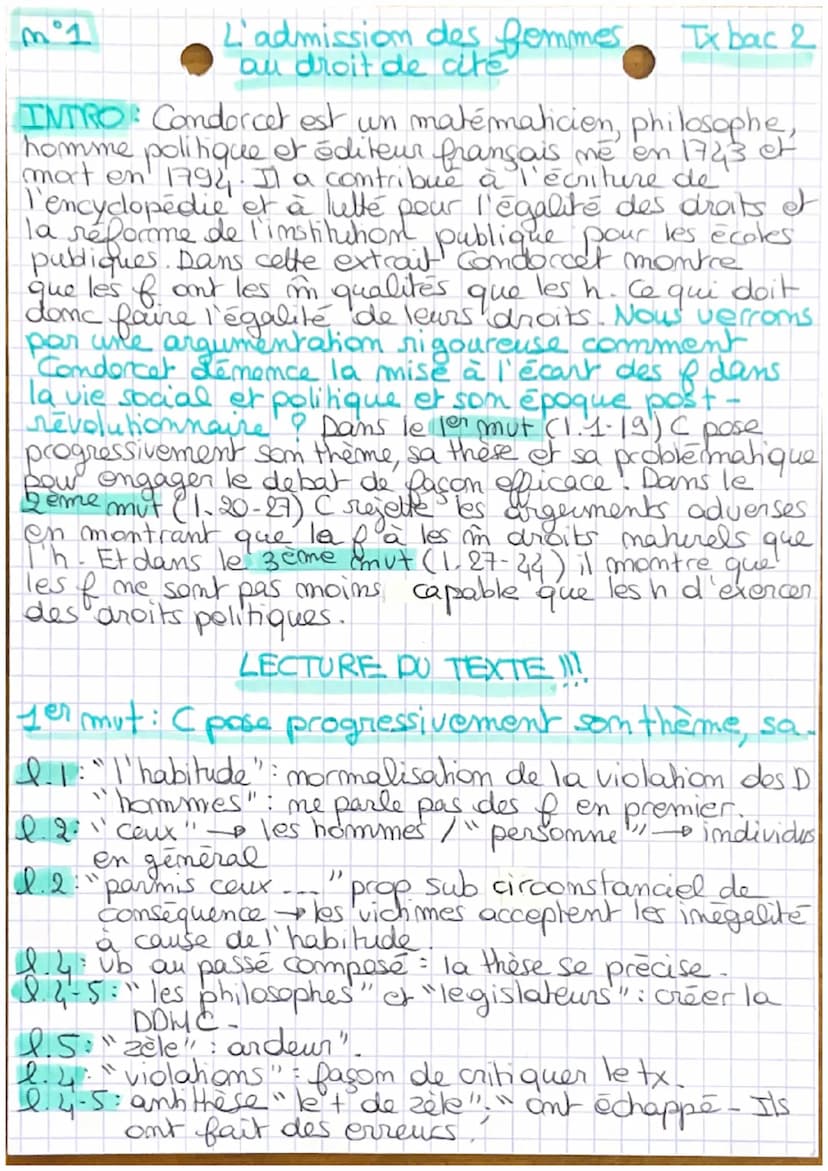 n°1 L'admission des femmes Tx bac 2
au droit de cité
INTRO : Condorcet est un matématicien, philosophe,
homme politique et éditeur français né en 1743 et
mort en 1794. Il a contribué à l'écriture de
l'encyclopédie et à lutté pour l'égalité des droits et
la réforme de l'instituhon publique pour les écoles
publiques. Dans cette extrait Condorcet montre
que les f ont les m̂ qualités que les h. Ce qui doit
donc faire l'égalité de leurs droits. Nous verrons
par une argumentation rigoureuse comment
Condorcet dénonce la mise à l'écart des f dans
la vie social et politique et son époque post-
révolutionnaire ? Dans le 1er mvt (l.1-19) C pose
progressivement son thème, sa thèse et sa problématique
pour engager le débat de façon efficace. Dans le
2ème mvt (l.20-27) C rejette les arguments adverses
en montrant que la f à les m̂ droits naturels que
l'h. Et dans le 3ème mvt (l.27-44) il montre que
les f ne sont pas moins capable que les h d'exercer
des droits politiques.
LECTURE DU TEXTE !!!
1er mvt : C pose progressivement son thème, sa-
l.1 : "l'habitude" : normalisation de la violation des D
"hommes" : ne parle pas des f en premier.
l.2 : "ceux" → les hommes / "personne" → individus
en général
l.2 : "parmis ceux ..." prop sub circonstanciel de
conséquence → les victimes acceptent les inégalité
à cause de l'habitude.
l.4 : vb au passé composé : la thèse se précise.
l.4-5 : "les philosophes" et "legislateurs" : créer la
DDHC.
l.5 : "zèle" : ardeur".
l.4 : "violations" : façon de critiquer le tx.
l.4-5 : antithèse "le + de zèle" : "ont échappé - Ils
ont fait des erreurs !